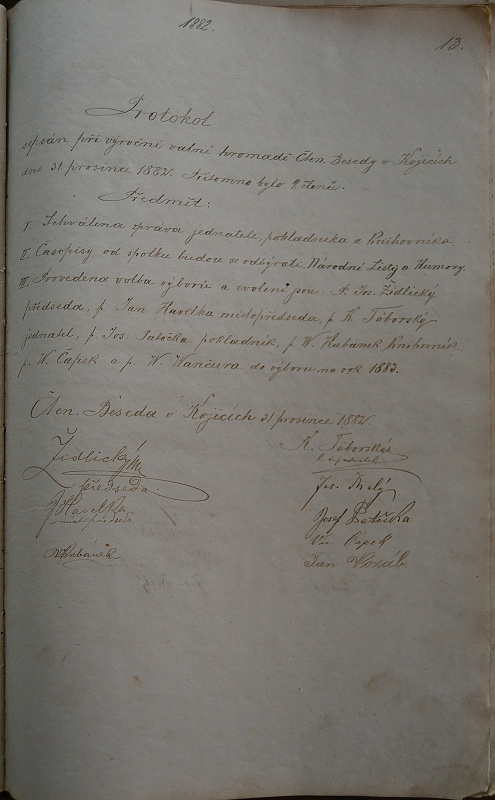 1882.
13.
Protokol
sepsán při výročné valné hromadě Čten. Besedy v Kojicích
dne 31 prosince 1882. Přítomno bylo 9 členů.
Předmět:
I. Schválena správa jednatele, pokladníka a Knihovníka.
II. Časopisy od spolku budou se odbýrati, Národní Listy a Humory.
III. Provedena volba výboru a zvoleni jsou P. Jos. Židlický
předseda, p. Jan Havelka místopředseda, p. K. Táborský
jednatel, p. Jos. Patočka pokladník, p. W. Kubánek Knihovník
p. W. Čapek a p. W. Wančura do výboru na rok 1883.
Čten. Beseda v Kojicích 31 prosince 1882.
K. Táborský
Židlický
předseda.
Jos. Malý
J Havelka
místopředseda
Josef Patočka
Čapek
W Kubánek
Jan